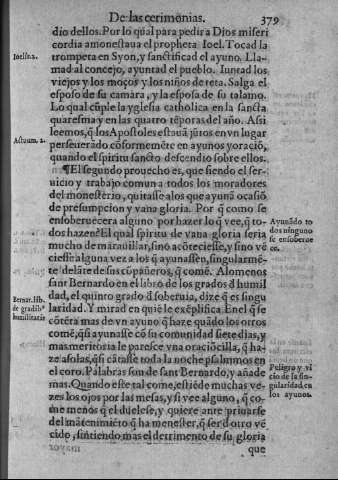 De las cerimonias. 379
dio dellos. Por lo qual para pedir a Dios miseri
cordia amonestaua el propheta Ioel. Tocad la
Ioelis.2.
trompeta en Syon, y sanctificad el ayuno. Lla-
mad al concejo, ayuntad el pueblo. Iuntad los
viejos y los moços y los niños de teta. Salga el
esposo de su camara, y la esposa de su talamo.
Lo qual cũple la yglesia catholica en la sancta
quaresma y en las quatro tẽporas del año. Assi
leemos, q̃ los Apostoles estauã jũtos en vn lugar
Actuum.2.
perseuerãdo cõformemẽte en ayunos y oraciõ,
quando el spiritu sancto descendio sobre ellos.
¶El segundo prouecho es, que siendo el ser-
uicio y trabajo comun a todos los moradores
del monesterio, quitasse a los que ayunã ocasiõ
de presumpcion y vana gloria. Por q̃ como se
ensoberuecera alguno por hazer lo q̃ vee, q̃ to-
dos hazen? El qual spiritu de vana gloria seria
Ayunãdo to
dos ninguno
se ensoberue
ce.
mucho de marauillar, sino acõteciesse, y sino vẽ
ciesse alguna vez a los q̃ ayunassen, singularmẽ-
te delãte de sus cõpañeros, q̃ comẽ. Alomenos
sant Bernardo en el libro de los grados d̃ humil
Bernar. lib.
de gradibꝰ
humilitatis
dad, el quinto grado d̃ soberuia, dize q̃ es singu
laridad. Y mirad en qui le exẽplifica En el q̃ se
cõtẽta mas de vn ayuno q̃ haze quãdo los otros
comẽ, q̃ si ayunasse cõ su comunidad siete dias, y
mas meritoria le parece vna oracioncilla, q̃ ha-
ze a solas, q̃ si cãtasse toda la noche psalmos en
el coro. Palabras son de sant Bernardo, y añade
Peligro y vi
cio de la sin-
gularidad, en
los ayunos.
mas. Quando este tal come, estiẽde muchas ve-
zes los ojos por las mesas, y si vee alguno, q̃ co-
me menos q̃ el duelese, y quiere ante priuarse
del mãtenimiẽto q̃ ha menester, q̃ ser d̃ otro vẽ
cido, sintiendo mas el detrimento de su gloria
que